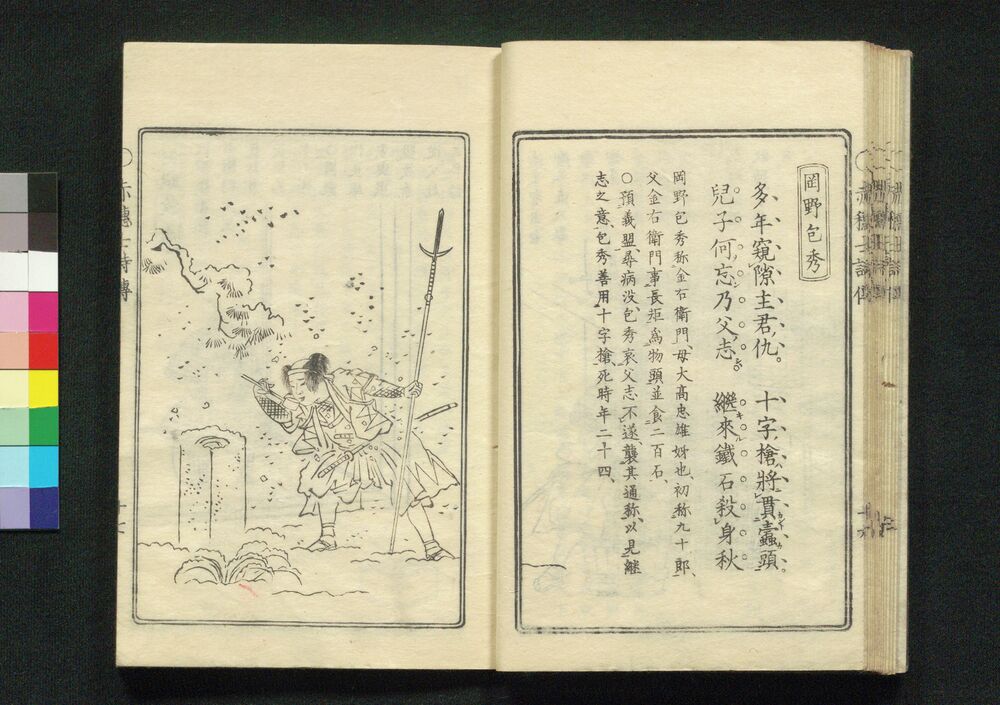 岡野包秀
多年窺隙主君仇。十字槍將貫蠧頭。
兒子何忘乃父志。繼來鐵石殺身秋
岡野包秀称金右衛門、母大高忠雄姉也、初称九十郎、
父金右衛門、事長矩為物頭並食二百石、
○預義盟、尋病没、包秀哀父志不遂、襲其通称、以見継
志之意、包秀善用十字槍、死時年二十四、